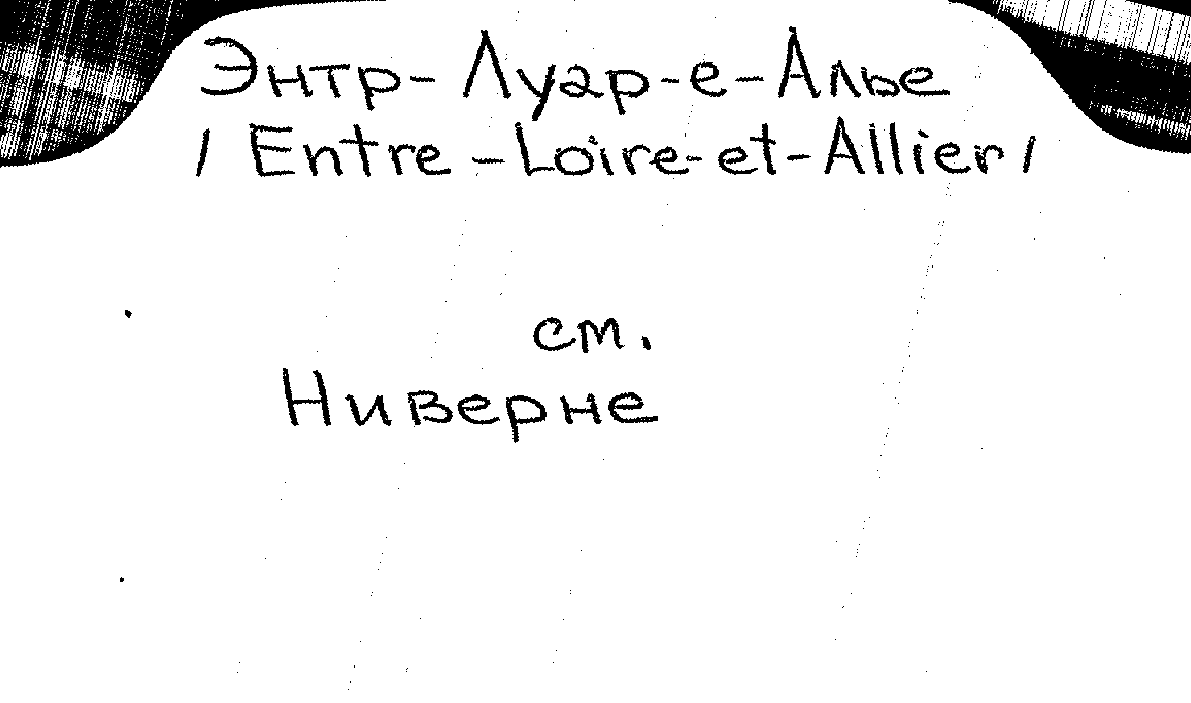 Энтр-Луар-е-Алье
/ Entre-Loire-et-Allier /
ст.
Ниверне